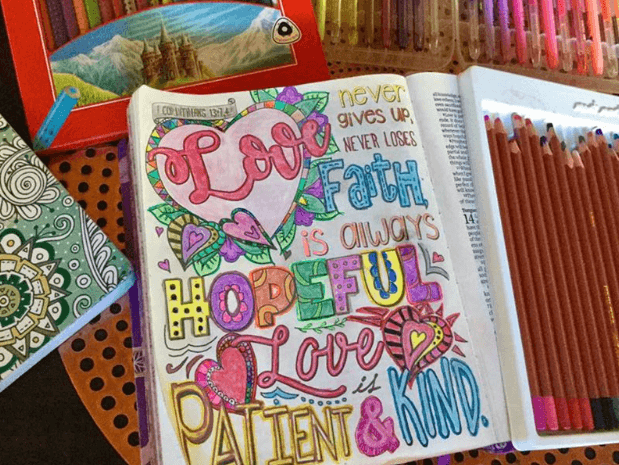 1 CORINTHIANS 13:7,4
Love
never
gives up,
NEVER LOSES
Faith,
is always
HOPEFUL
Love
is
PATIENT & KIND.
14